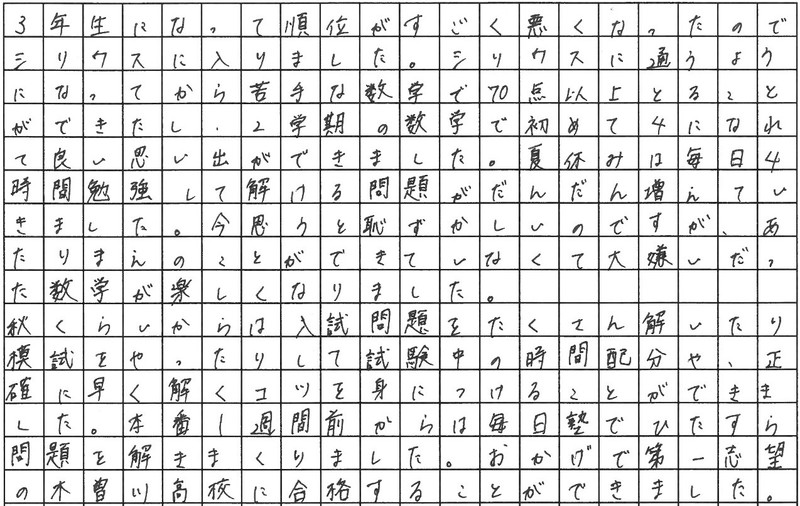 3年生になって順位がすごく悪くなったので
シリウスに入りました。シリウスに通うよう
になってから苦手な数学で70点以上とること
ができたし、2学期の数学で初めて4になれ
て良い思い出ができました。夏休みは毎日4
時間勉強して解ける問題がだんだん増えてい
きました。今思うと恥ずかしいのですが、あ
たりまえのことができていなくて大嫌いだっ
た数学が楽しくなりました。
秋くらいからは入試問題をたくさん解いたり
模試をやったりして試験中の時間配分や、正
確に早く解くコツを身につけることができま
した。本番1週間前からは毎日塾でひたすら
問題を解きまくりました。おかげで第一志望
の木曽川高校に合格することができました。